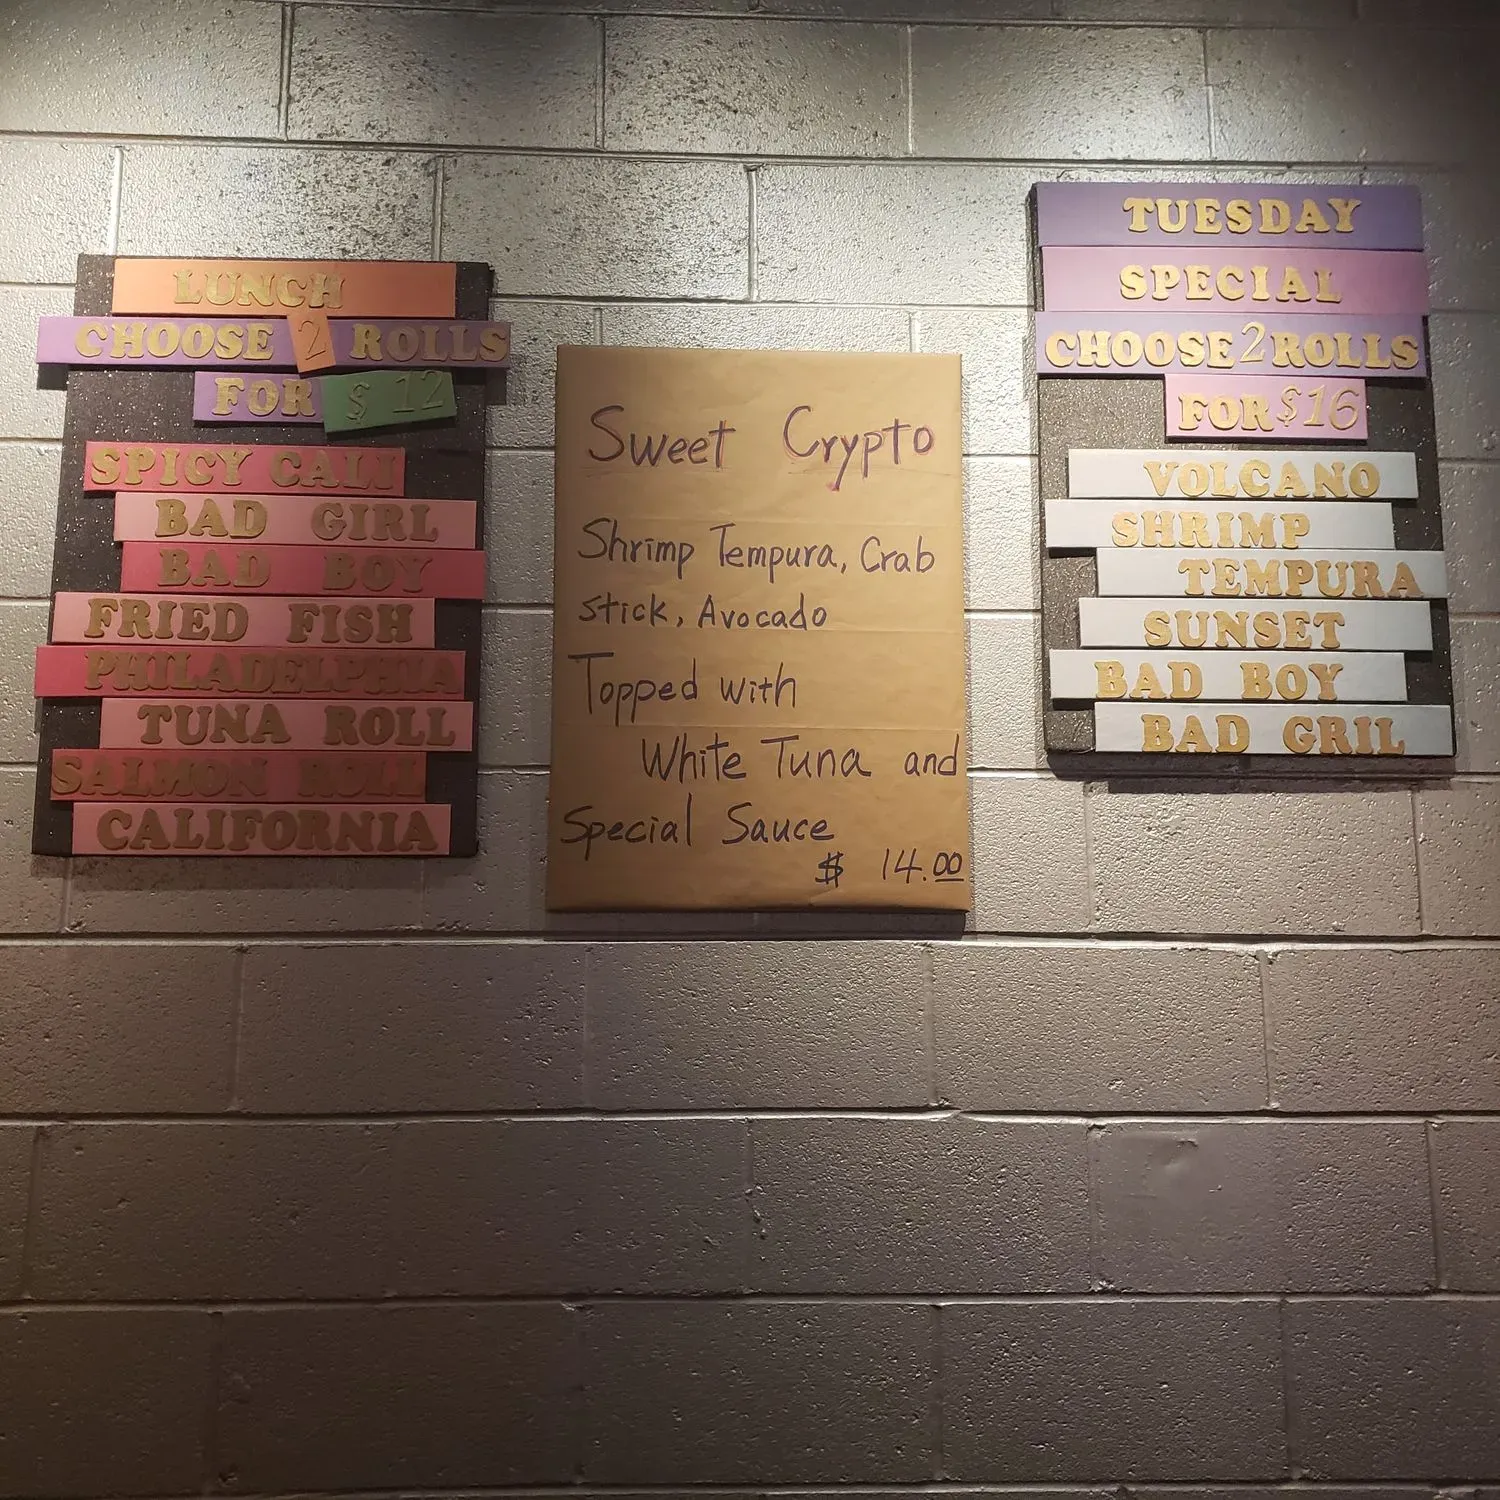 LUNCH
CHOOSE 2 ROLLS
FOR $ 12
SPICY CALI
BAD GIRL
BAD BOY
FRIED FISH
PHILADELPHIA
TUNA ROLL
SALMON ROLL
CALIFORNIA
Sweet Crypto
Shrimp Tempura, Crab
stick, Avocado
Topped with
White Tuna and
Special Sauce
$ 14.00
TUESDAY
SPECIAL
CHOOSE 2 ROLLS
FOR $16
VOLCANO
SHRIMP
TEMPURA
SUNSET
BAD BOY
BAD GRIL